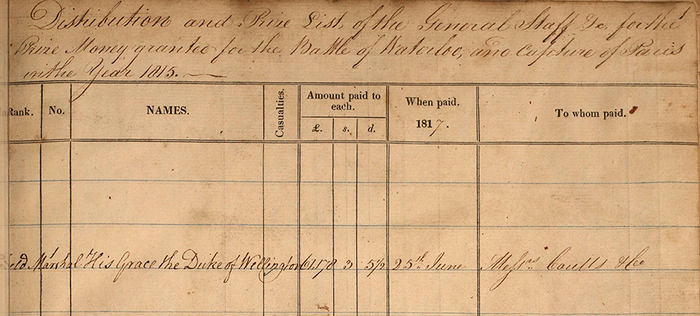 Distribution and Prize List, of the General Staff &c, for the
Prize Money granted for the Battle of Waterloo, and Capture of Paris
in the Year 1815.
Rank. No. NAMES. Casualties. Amount paid to each. When paid. To whom paid.
£. s. d. 1817.
Field Marshal His Grace the Duke of Wellington 3 5½ 25th June Messrs Coutts & Co